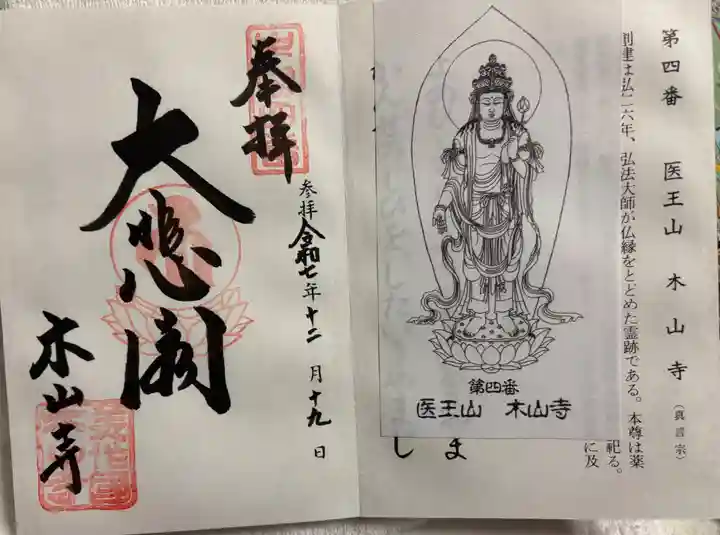 第四番 医王山 木山寺 (真言宗)
創建は弘仁六年、弘法大師が仏縁をとどめた霊跡である。本尊は薬
祀る。
に及
第四番
医王山 木山寺
ま
し
奉拝
参拝 令和七年 十二月 十九日
大悲閣
木山寺